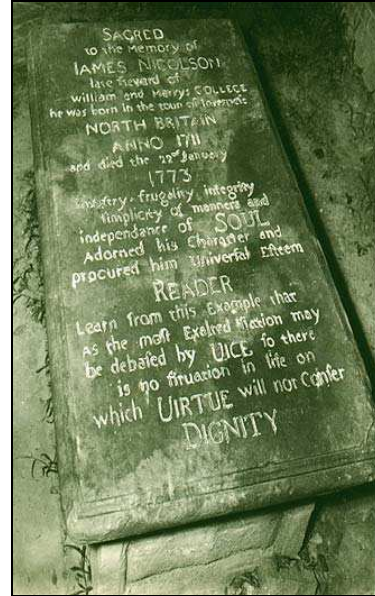 SACRED
to the Memory of
IAMES NICOLSON
late steward of
William and Marrys COLLEGE
he was born in the toun of Inverness
NORTH BRITAIN
ANNO 1711
and died the 22nd January
1773
Industry frugality integrity
simplicity of manners and
independance of SOUL
Adorned his Character and
procured him Univerſal Eſteem
READER
Learn from this Example that
As the moſt Exalted Station may
be debaſed by UICE ſo there
is no ſituation in life on
which UIRTUE will not Confer
DIGNITY